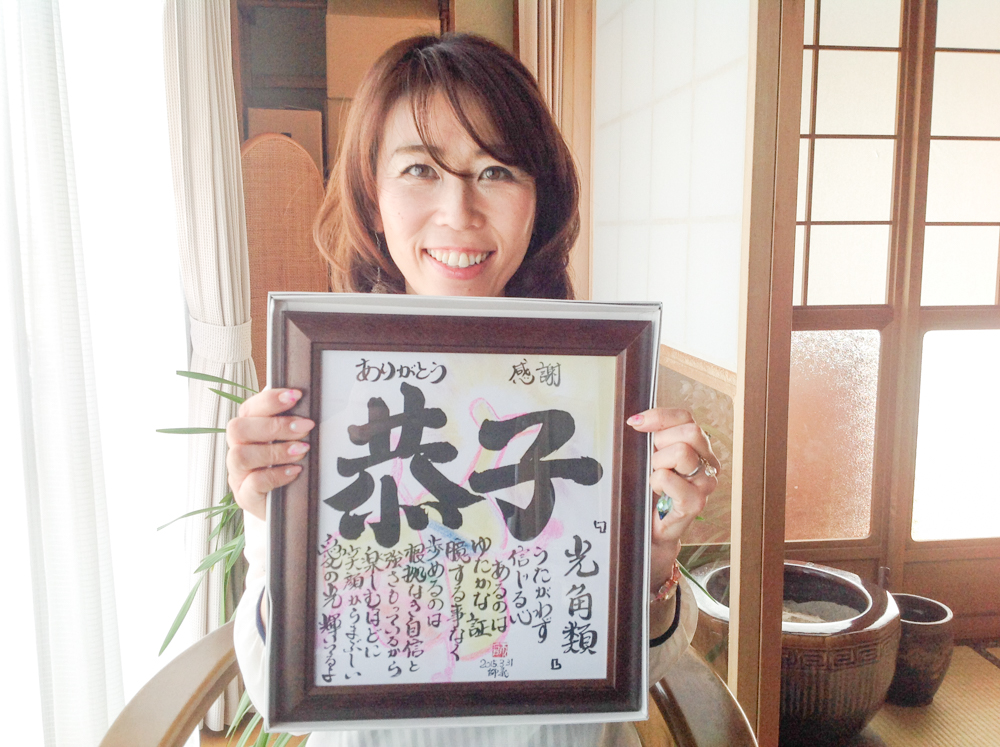 ありがとう 感謝
恭子
『光角類』
うたがわず
信じる心
あるのは
ゆたかな証
臆する事なく
歩めるのは
根拠なき自信と
強さもっているから
楽しむほどに
笑顔からまぶしい
愛の光輝いてるよ